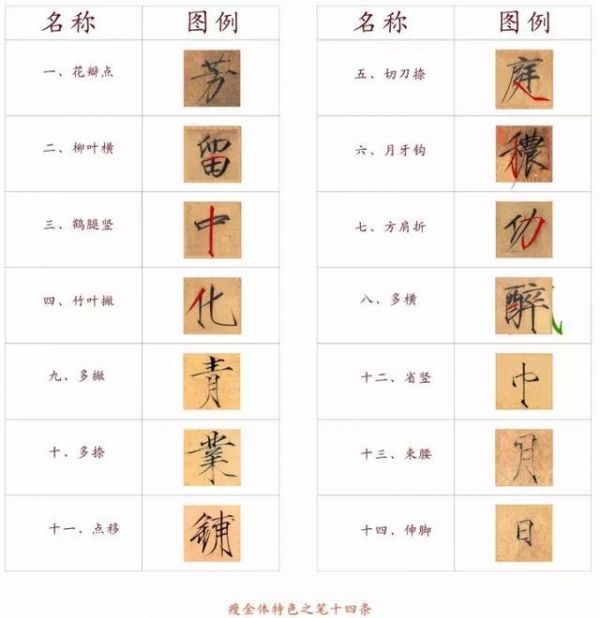 名称 图例
一、花瓣点 芳
二、柳叶横 留
三、鹤腿竖 中
四、竹叶撇 化
九、多撇 青
十、多捺 業
十一、点移 鋪
名称 图例
五、切刀捺 庭
六、月牙钩 穠
七、方肩折 功
八、多横 醉
十二、省竖 巾
十三、束腰 月
十四、伸脚 日
瘦金体特色之笔十四条